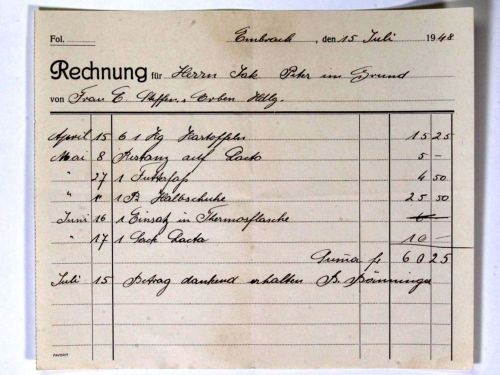 Fol. Embrach, den 15 Juli 1948
Rechnung für Herrn Jak Peter im Grund
von Frau E. Steffen, Erben Hdlg.
April 15 61 Kg Kartoffeln 15 25
Mai 8 Restanz auf Lacta 5 -
" 27 1 Futterfass 4 50
" " 1 P. Halbschuhe 25 50
Juni 16 1 Einsatz in Thermosflasche
" 17 1 Sack Lacta 10 -
Summa fr 60 25
Juli 15 Betrag dankend erhalten B. Bänninger
FAVORIT